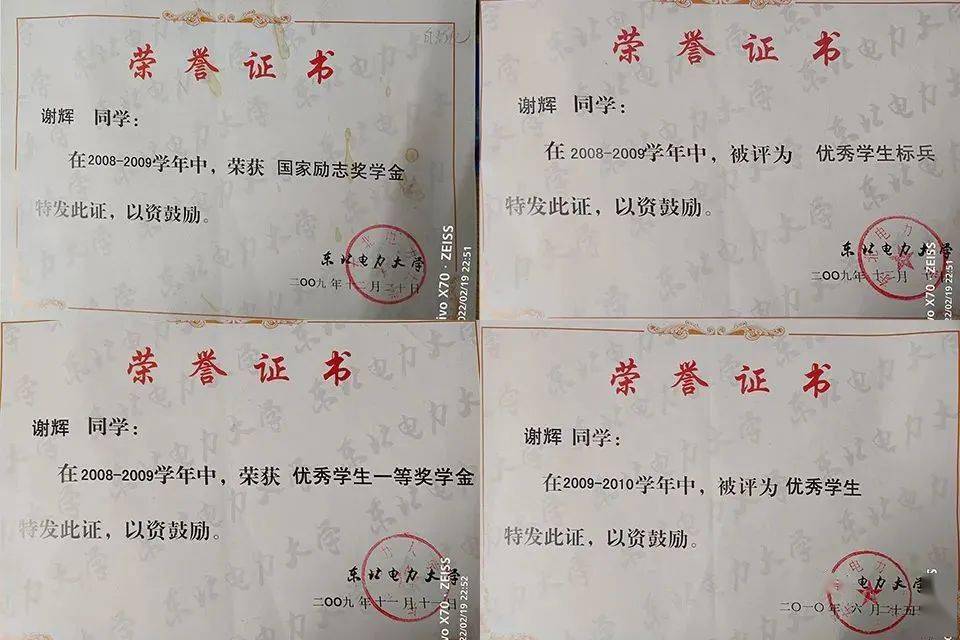 荣誉证书
谢辉 同学：
在2008-2009学年中，荣获 国家励志奖学金
特发此证，以资鼓励。
东北电力大学
二〇〇九年十二月二十日
ivo X70 · ZEISS
022/02/19 22:51
荣誉证书
谢辉 同学：
在2008-2009学年中，被评为 优秀学生标兵
特发此证，以资鼓励。
东北电力大学
二〇〇九年十二月 日
ivo X70 · ZEISS
022/02/19 22:51
荣誉证书
谢辉 同学：
在2008-2009学年中，荣获 优秀学生一等奖学金
特发此证，以资鼓励。
东北电力大学
二〇〇九年十一月十一日
ivo X70 · ZEISS
022/02/19 22:52
荣誉证书
谢辉 同学：
在2009-2010学年中，被评为 优秀学生
特发此证，以资鼓励。
电力大学
二〇一〇年六月二十五日